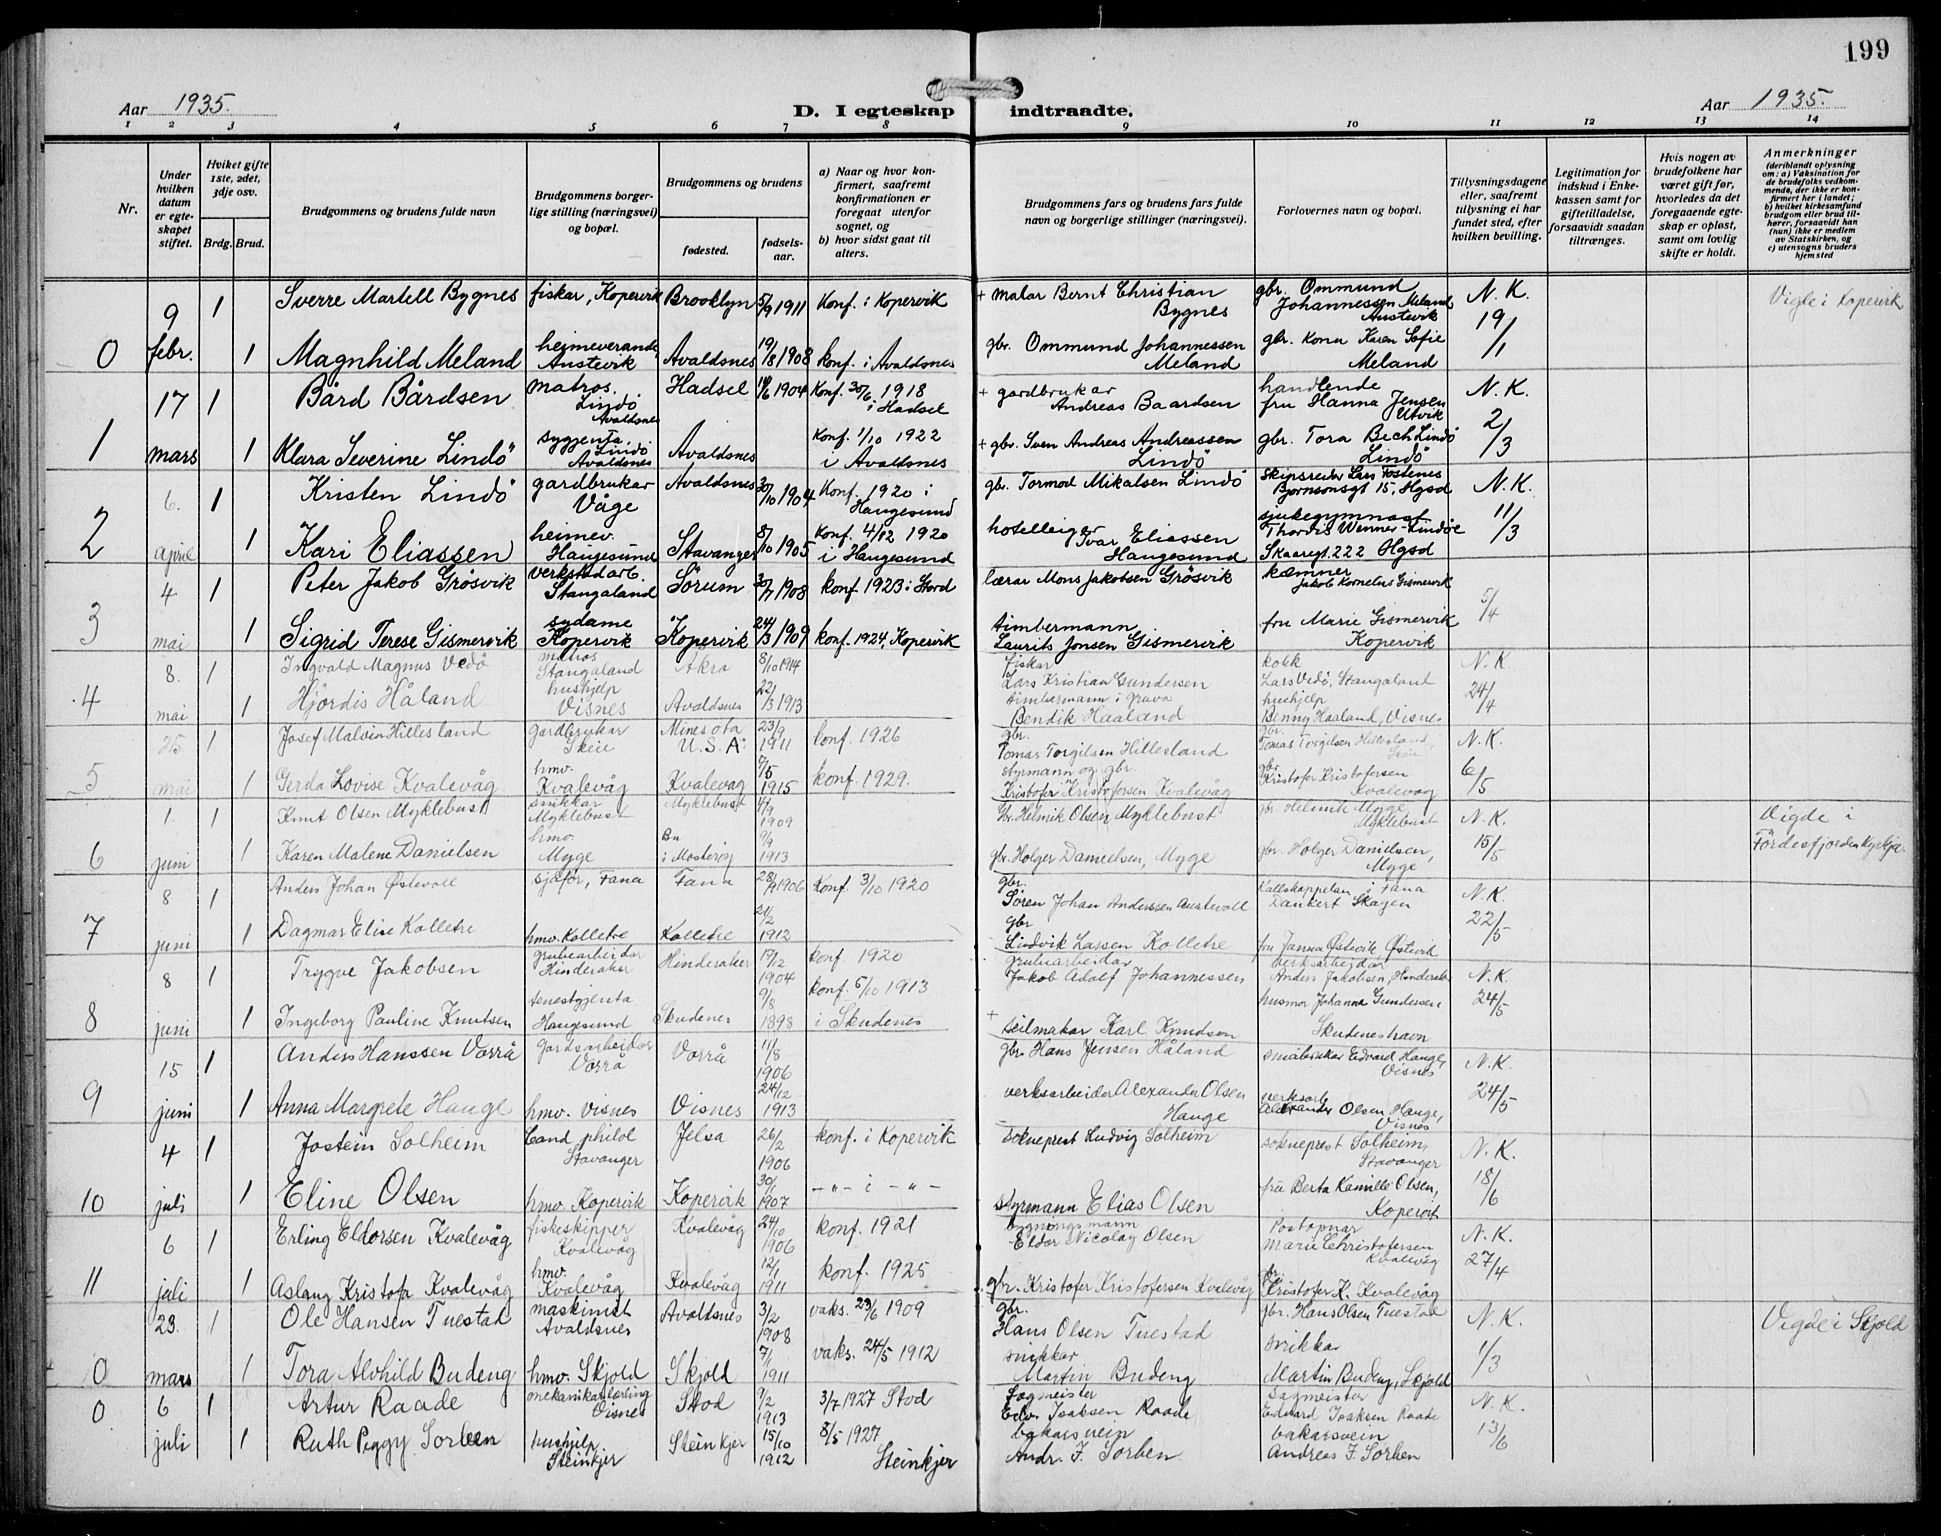 199
Aar 1935.
D. I egteskap indtraadte.
Aar 1935.
1 2 3 4 5 6 7 8 9 10 11 12 13 14
Nr.
Under hvilken datum er egteskapet stiftet.
Hviket gifte 1ste, 2det, 3dje osv.
Brdg. Brud.
Brudgommens og brudens fulde navn
Brudgommens borgerlige stilling (næringsvei) og bopæl.
Brudgommens og brudens
fødested.
fødselsaar.
a) Naar og hvor konfirmert, saafremt konfirmationen er foregaat utenfor sognet, og
b) hvor sidst gaat til alters.
Brudgommens fars og brudens fars fulde navn og borgerlige stillinger (næringsvei).
Forlovernes navn og bopæl.
Tillysningsdagene eller, saafremt tillysning ei har fundet sted, efter hvilken bevilling.
Legitimation for indskud i Enkekassen samt for giftetilladelse, forsaavidt saadan tiltrænges.
Hvis nogen av brudefolkene har været gift før, hvorledes da det foregaaende egteskap er opløst, samt om lovlig skifte er holdt.
Anmerkninger
(deriblandt oplysning om: a) Vaksination for de brudefolks vedkommende, der ikke er konfirmert her i landet; b) hvilket kirkesamfund brudgom eller brud tilhører, forsaavidt han (hun) ikke er medlem av Statskirken, og c) utensogns bruders hjemsted
9 1 Sverre Martell Bygnes fiskar, Kopervik Brooklyn 5/9 1911 Konf. i Kopervik + malar Bernt Christian Bygnes gbr. Ommund Johannessen Meland Austevik N.K. 19/1 Vigle i Kopervik
0 febr. 1 Magnhild Meland heimeverande Austevik Avaldsnes 19/8 1908 konf. i Avaldsnes gbr. Ommund Johannessen Meland gbr. kona Karen Sofie Meland
17 1 Bård Bårdsen matros. Lindö Avaldsnes Hadsel 1904 Konf. 30/6 1918 i Hadsel + gardbrukar Andreas Baardsen handlende fru Hanna Jensen Utvik N.K. 2/3
1 mars 1 Klara Severine Lindö sygjenta, Lindö Avaldsnes Avaldsnes Konf. 1/10 1922 i Avaldsnes + gbr. Sven Andreas Andreassen Lindö gbr. Tora Bech Lindö Lindö
6. 1 Kristen Lindö gardbrukar Våge Avaldsnes 30/10 1904 Konf. 1920 i Haugesund gbr. Tormod Mikalsen Lindö Skipsreder Lars Tostenes Bjørnsonsgt 15, Hgsd N.K. 11/3
2 April 1 Kari Eliassen heimev. Haugesund Stavanger 8/10 1905 konf. 4/12 1920 i Haugesund hotelleiger Ivar Eliassen Haugesund sjukegymnast Thordis Wenner-Lindöe Skaaregt. 222 Hgsd
4 1 Peter Jakob Grösvik verkstadarb. Stangaland Sörum 30/7 1908 konf. 1923 i Stord lærar Mons Jakobsen Grösvik kæmner Jakob Kornelius Gismervik 5/4
3 mai 1 Sigrid Terese Gismervik sydame Kopervik Kopervik 24/3 1909 konf. 1924, Kopervik timbermann Laurits Jonsen Gismervik fru Marie Gismervik Kopervik
8. 1 Ingvald Magnus Vedö matros Stangaland Åkra 8/10 1914 fiskar Lars Kristian Gundersen kokk Lars Vedö, Stangaland N.K. 24/4
4 mai 1 Hjördis Håland hushjelp Visnes Avaldsnes 22/3 1913 timbermann i gruva Bendik Haaland hushjelp Benny Haaland, Visnes
25 1 Josef Malvin Hillesland gardbrukar Skeie Minesota U.S.A. 23/9 1911 konf. 1926 gbr. Tomas Torgilsen Hillesland gbr. Tomas Torgilsen Hillesland, Skeie N.K. 6/5
5 mai 1 Gerda Lovise Kvalevåg hmv. Kvalevåg Kvalevag 9/5 1915 konf. 1929. styrmann og gbr Kristofer Kristofersen Kvalevåg gbr Kristofer Kristofersen Kvalevag
1. 1 Knut Olsen Myklebust snikkar Myklebust Myklebust 4/9 1909 Gbr. Helmik Olsen Myklebust gbr. Helmik Myge Myklebust N.K. 15/5 Vigde i Fördesfjorden Kyrkja.
6 juni 1 Karen Malene Danielsen hmv. Myge Bu i Mosterøy 9/9 1913 gbr. Holger Danielsen, Myge gbr. Holger Danielsen, Myge
8 1 Anders Johan Østevoll sjåfør, Fana Fana 1906 Konf. 3/10 1920 gbr. Sören Johan Anderssen Austevoll Kallskappelan i Fana Dankert Skagen N.K. 22/5
7 juni 1 Dagmar Elise Kolletre hmv. Kolletre Kolletre 21/2 1912 gbr Ludvik Lassen Kolletre fru Janna Østevik, Østevik
8 1 Trygve Jakobsen grubearbeidar Hinderaker Hinderaker 17/2 1904 konf. 1920 grubearbeidar Jakob Adolf Johannessen verksarbeidar Anders Jakobsen, Hinderaker N.K. 24/5
8 juni 1 Ingeborg Pauline Knutsen tenestgjenta Haugesund Skudenes 9/8 1898 konf. 5/10 1913 i Skudenes + seilmakar Karl Knudsen husmor Johanna Gundersen Skudeneshavn
15 1 Anders Hanssen Vorrå Gardsarbeidar Vorrå Vorrå 11/8 1906 gbr. Hans Jensen Håland småbrukar Edvard Hauge, Visnes N.K. 24/5
9 juni 1 Anna Margrete Hauge hmv. Visnes Visnes 24/12 1913 verksarbeidar Alexander Olsen Hauge verksarb. Alexander Olsen Hauge, Visnes
4 1 Jostein Solheim Cand. philol Stavanger Jelsa 26/2 1906 konf. i Kopervik sokneprest Ludvig Solheim sokneprest Solheim, Stavanger N.K. 18/6
10 juli 1 Eline Olsen hmv. Kopervik Kopervik 30/1 1907 -"- i -"- styrmann Elias Olsen fru Berta Kamille Olsen, Kopervik
6 1 Erling Eldorsen Kvalevåg fiskeskipper Kvalevåg Kvalevåg 24/10 1906 konf. 1921 bygningsmann Eldor Nicolay Olsen Postopnar Marie Christofersen Kvalevåg N.K. 27/4
11 juli 1 Aslaug Kristofa Kvalevåg hmv. Kvalevåg Kvalevåg 12/1 1911 konf. 1925 gbr. Kristofer Kristofersen Kvalevåg gbr. Kristofer K. Kvalevåg
23. 1 Ole Hansen Tuestad maskinist Avaldsnes Avaldsnes 3/2 1908 vaks. 23/6 1909 gbr. Hans Olsen Tuestad gbr. Hans Olsen Tuestad N.K. 1/3 Vigde i Skjold
0 mars 1 Tora Alvhild Budeng hmv. Skjold Skjold 7/1 1911 vaks. 24/5 1912 snikkar Martin Budeng snikkar Martin Budeng, Skjold
0 6 1 Artur Raade mekanikarlærling Visnes Stod 9/2 1913 3/7 1927 Stod Sagmeister Edv. Isaksen Raade Sagmeister Edvard Isaksen Raade N.K. 13/6
juli 1 Ruth Peggy Sorben hushjelp Steinkjer Steinkjer 15/10 1912 8/5 1927 Steinkjer bakarsvein Andr. F. Sorben bakarsvein Andreas F. Sorben